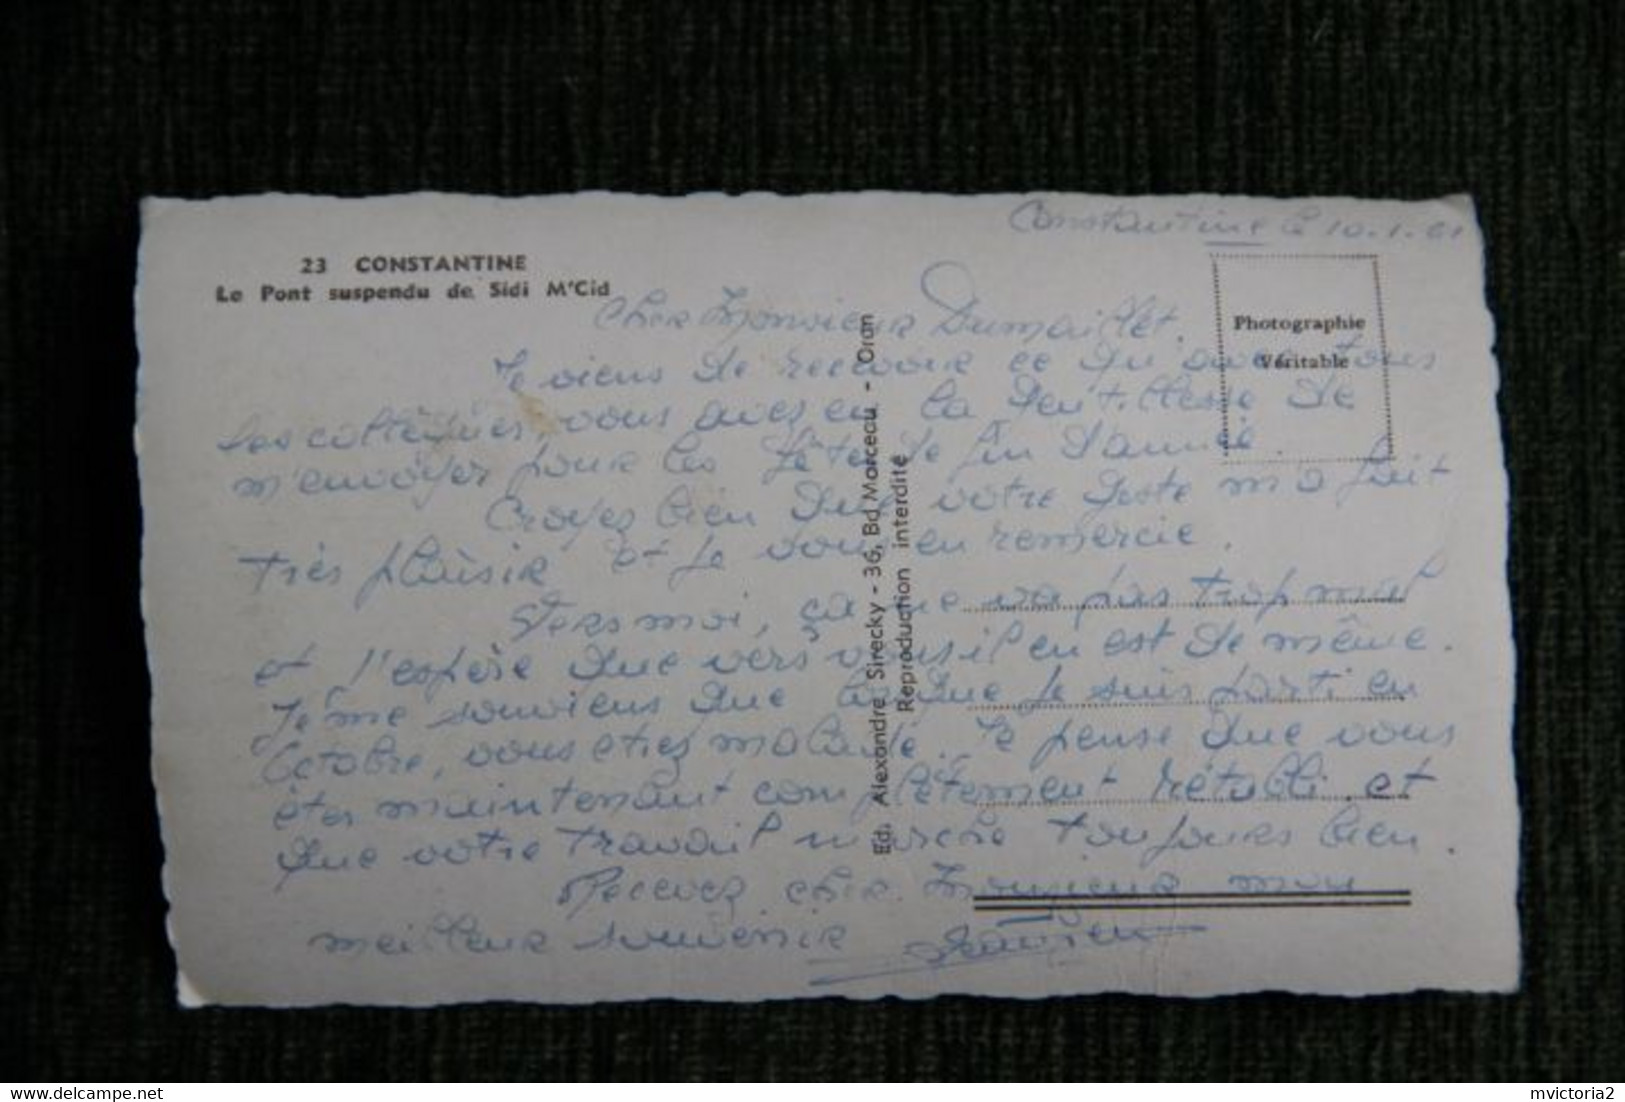 Constantine le 10.1.61
23 CONSTANTINE
Le Pont suspendu de Sidi M'Cid
Photographie
Véritable
Cher Monsieur Dumaillet.
Je viens de recevoir ce qu'avec tous
les collègues, vous avez eu la gentillesse de
m'envoyer pour les fêtes de fin d'année.
Croyez bien que votre geste m'a fait
très plaisir et je vous en remercie.
Vers moi, ça ne va pas trop mal
et j'espère que vers vous il en est de même.
Je me souviens que lorsque je suis parti en
Octobre, vous etiez malade. Je pense que vous
êtes maintenant complètement rétabli et
que votre travail marche toujours bien.
Recevez cher Monsieur mon
meilleur souvenir
Ed. Alexandre Sirecky - 36, Bd Marceau - Oran
Reproduction interdite
mvictoria2